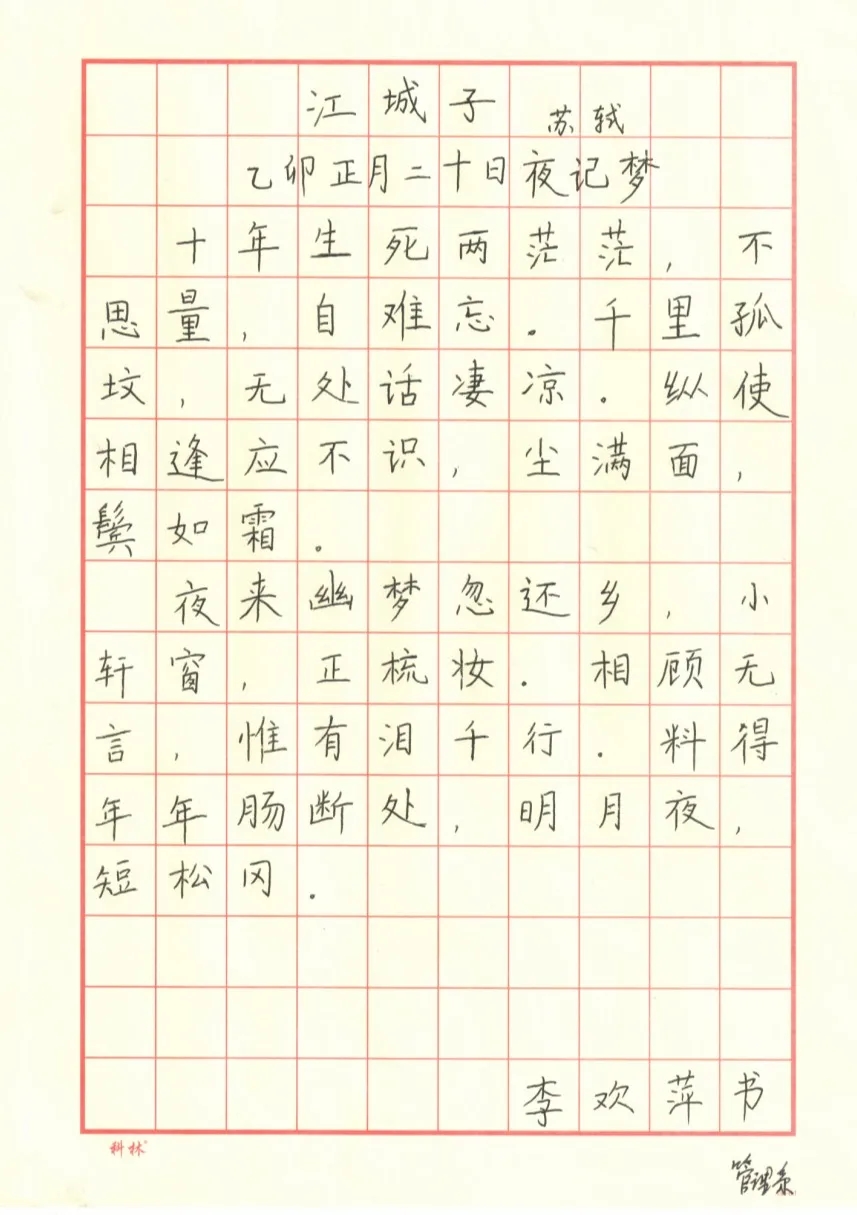 江城子 苏轼
乙卯正月二十日夜记梦
十年生死两茫茫，不
思量，自难忘。千里孤
坟，无处话凄凉。纵使
相逢应不识，尘满面，
鬓如霜。
夜来幽梦忽还乡，小
轩窗，正梳妆．相顾无
言，惟有泪千行．料得
年年肠断处，明月夜，
短松冈．
李欢萍书
科林
管理系